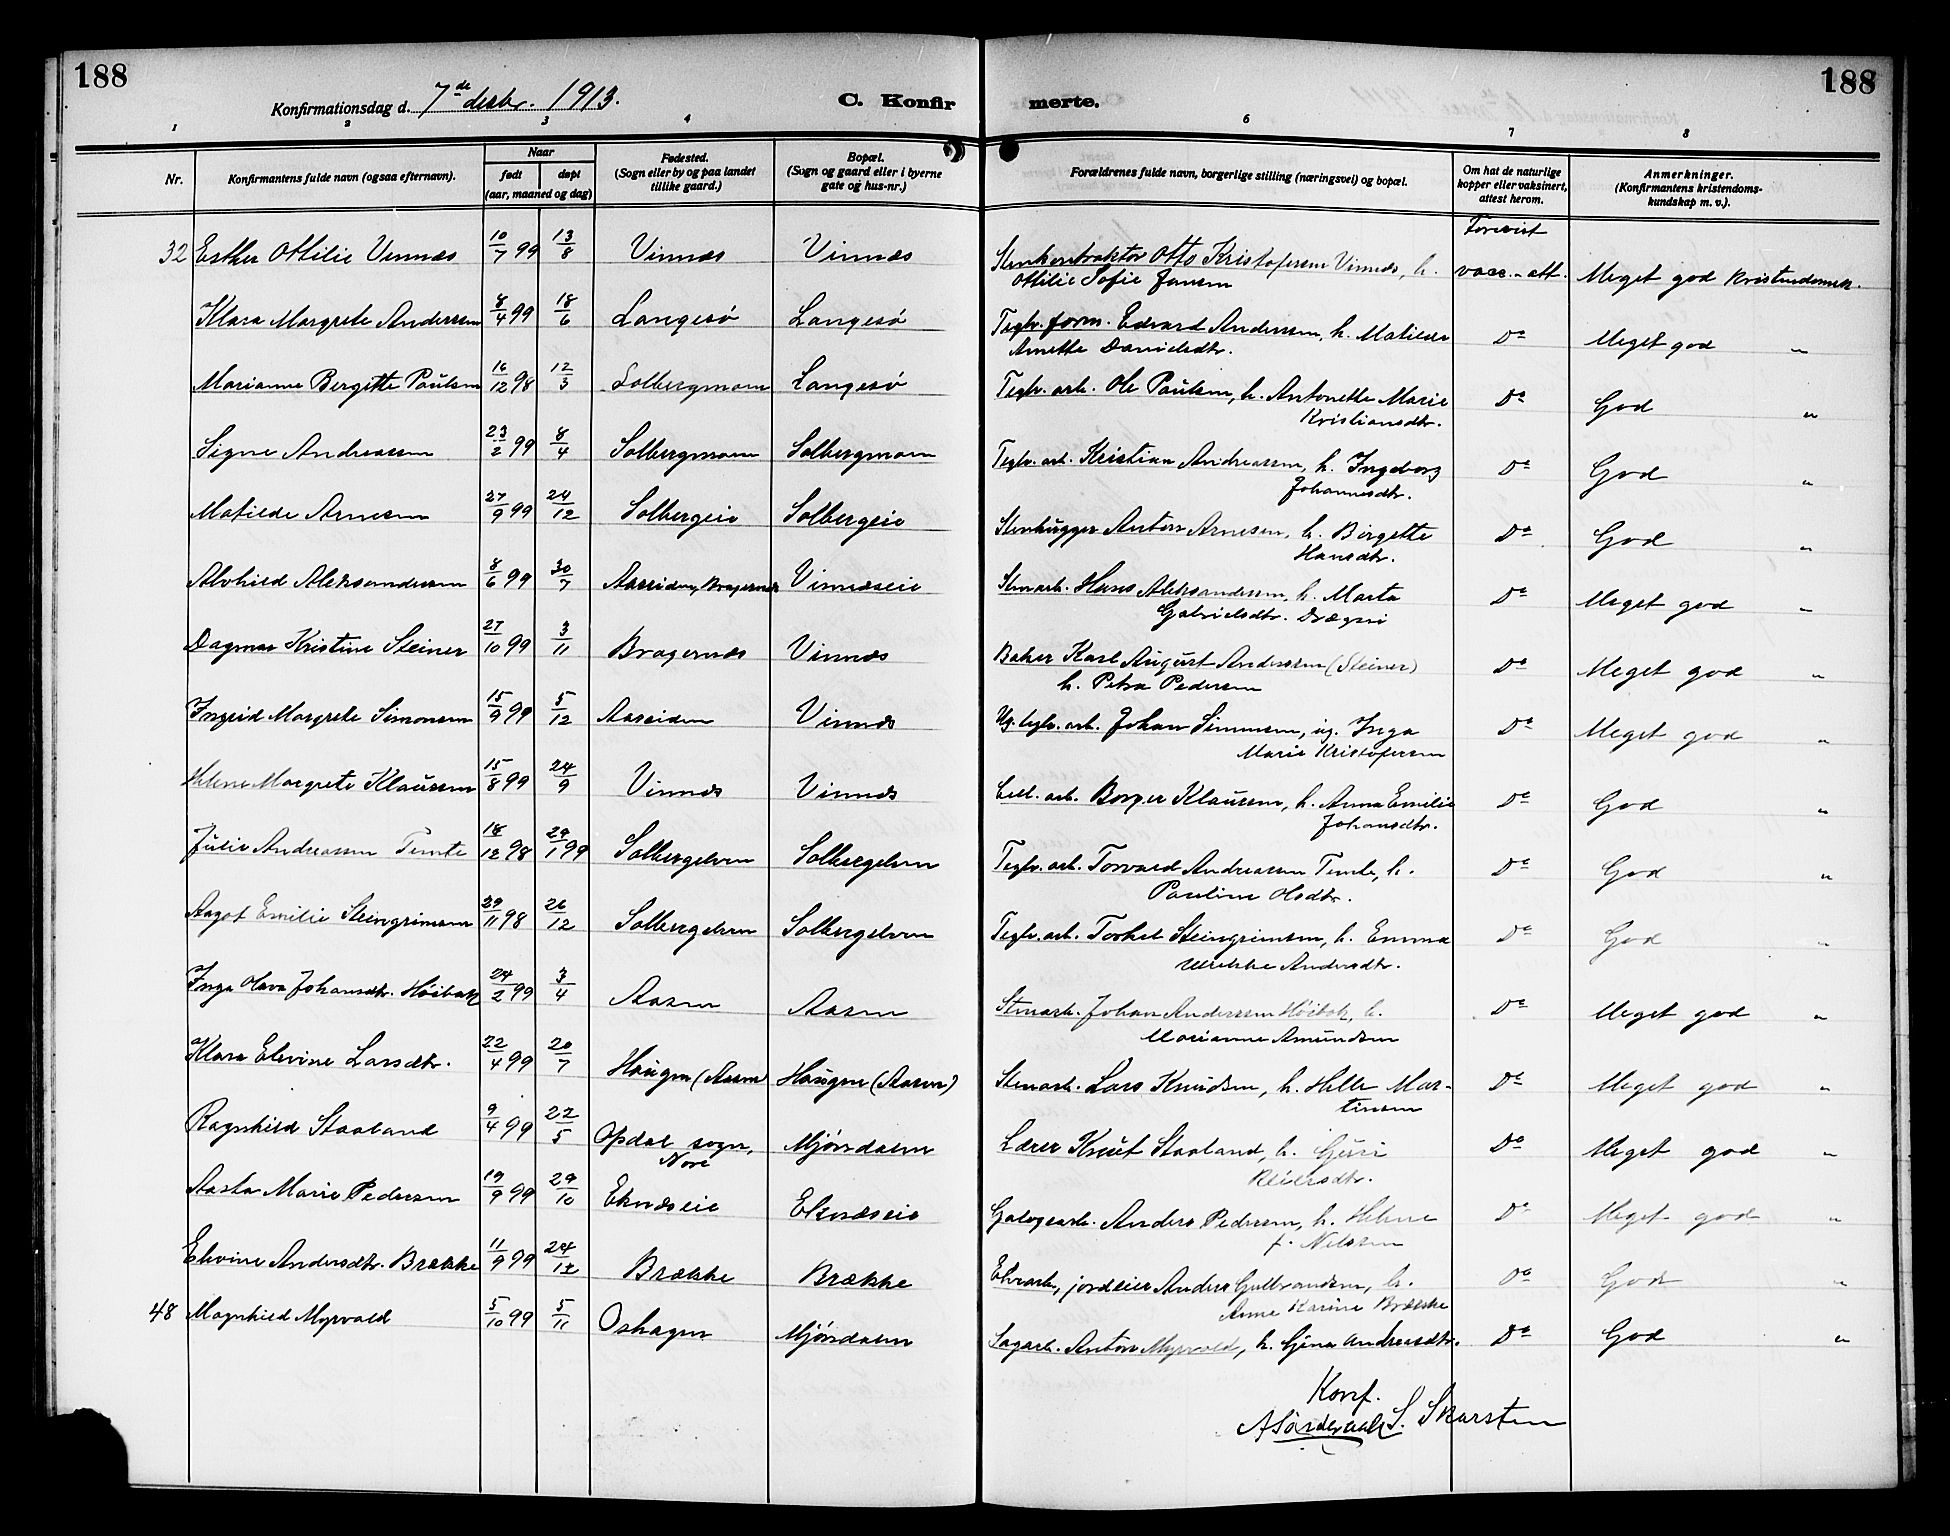 188
188
Konfirmationsdag d. 7de desbr. 1913.
C. Konfir merte.
1 2 3 4 6 7 8
Nr. Konfirmantens fulde navn (ogsaa efternavn). Naar født døpt (aar, maaned og dag) Fødested. (Sogn eller by og paa landet tillike gaard.) Bopæl. (Sogn og gaard eller i byerne gate og hus-nr.) Forældrenes fulde navn, borgerlige stilling (næringsvei) og bopæl. Om hat de naturlige kopper eller vaksinert, attest herom. Anmerkninger. (Konfirmantens kristendoms-kundskap m. v.).
32 Esther Ottilie Vinnæs 10/7 99 13/8 Vinnæs Vinnæs Stenkontraktør Otto Kristofersen Vinnæs, h. Ottilie Sofie Jansen Forevist vacc.-att. Meget god kristendomsk.
Klara Margrete Anderssen 8/4 99 18/6 Langesø Langesø Teglv.form. Edvard Anderssen, h. Matilde Amette Danielsdtr. Do Meget god "
Marianne Bergitte Paulsen 16/12 98 12/3 Solbergmoen Langesø Teglv. arb. Ole Paulsen, h. Antonette Marie Kristiansdtr. Do God "
Signe Andreassen 23/2 99 8/4 Solbergmoen Solbergmoen Teglv. arb. Kristian Andreassen, h. Ingeborg Johannesdtr. Do God "
Matilde Arnesen 27/9 99 24/12 Solbergeie Solbergeie Stenhugger Anton Arnesen, h. Birgette Hansdtr. Do God "
Alvhild Aleksandersen 8/6 99 30/7 Aassiden, Bragernæs Vinnæseie Stenarb. Hans Aleksandersen, h. Marta Gabrielsdtr. Drægni Do Meget god "
Dagmar Kristine Steiner 27/10 99 3/11 Bragernæs Vinnæs Baker Karl August Anderssen (Steiner) h. Petra Pedersen Do Meget god "
Ingrid Margrete Simonsen 15/9 99 5/12 Aaseiden Vinnæs Ug. teglv. arb. Johan Simonsen, ug. Inga Marie Kristofersen Do Meget god "
Helene Margrete Klaussen 15/8 99 24/9 Vinnæs Vinnæs Cell. arb. Borger Klaussen, h. Anna Emilie Johansdtr. Do God "
Julie Andreassen Temte 18/12 98 29/1 99 Solbergelven Solbergelven Teglv. arb. Torvald Andreassen Temte, h. Pauline Olsdtr. Do God "
Aagot Emilie Steingrimsen 29/11 98 26/12 Solbergelven Solbergelven Teglv. arb. Torkel Steingrimsen, h. Emma Ulrikke Andersdtr. Do God "
Inga Olava Johansdtr. Høibak 24/2 99 3/4 Aasen Aasen Stenarb. Johan Anderssen Høibak, h. Marianne Amundsen Do Meget god "
Klara Elevine Larsdtr. 22/4 99 20/7 Haugen (Aasen) Haugen (Aasen) Stenarb. Lars Knudsen, h. Helle Mar-tinsen Do Meget god "
Ragnhild Staaland 9/4 99 22/5 Opdal sogn, Nore Mjøndalen Lærer Knut Staaland, h. Guri Reiersdtr. Do Meget god "
Aasta Marie Pedersen 19/9 99 29/10 Eknæseie Eknæseie Galvgearb. Anders Pedersen, h. Helene f. Nilssen Do Meget god "
Elevine Andersdtr. Brække 11/9 99 24/12 Brække Brække Elvearb., jordeier Anders Gulbrandsen, h. Anne Karine Brække Do God "
48 Magnhild Myrvold 5/10 99 5/11 Oshagen Mjøndalen Sagarb. Anton Myrvold, h. Gina Andreasdtr. Do God "
Konf.
S. Skarsten